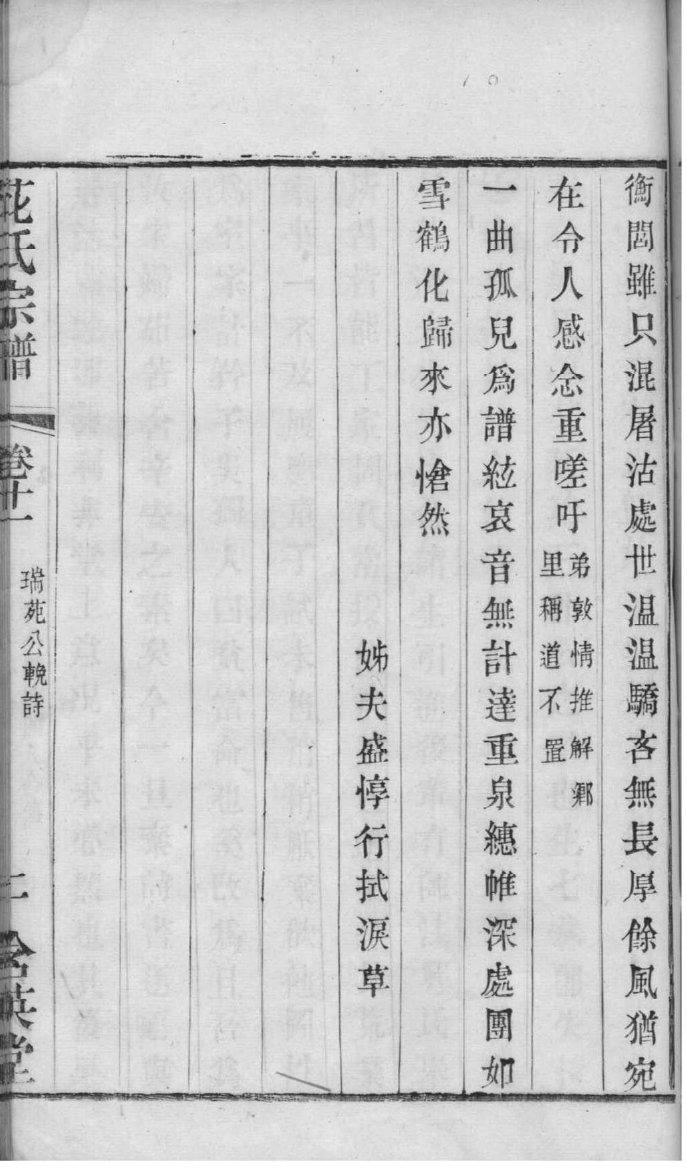 衡閭雖只混屠沽處世温温驕吝無長厚餘風猶宛
在令人感念重嗟吁弟敦情推解鄉
里稱道不置
一曲孤兒爲譜絃哀音無計達重泉繐帷深處團如
雪鶴化歸來亦愴然
姊夫盛惇行拭淚草
花氏宗譜
卷十一
瑞苑公輓詩
二
含英堂